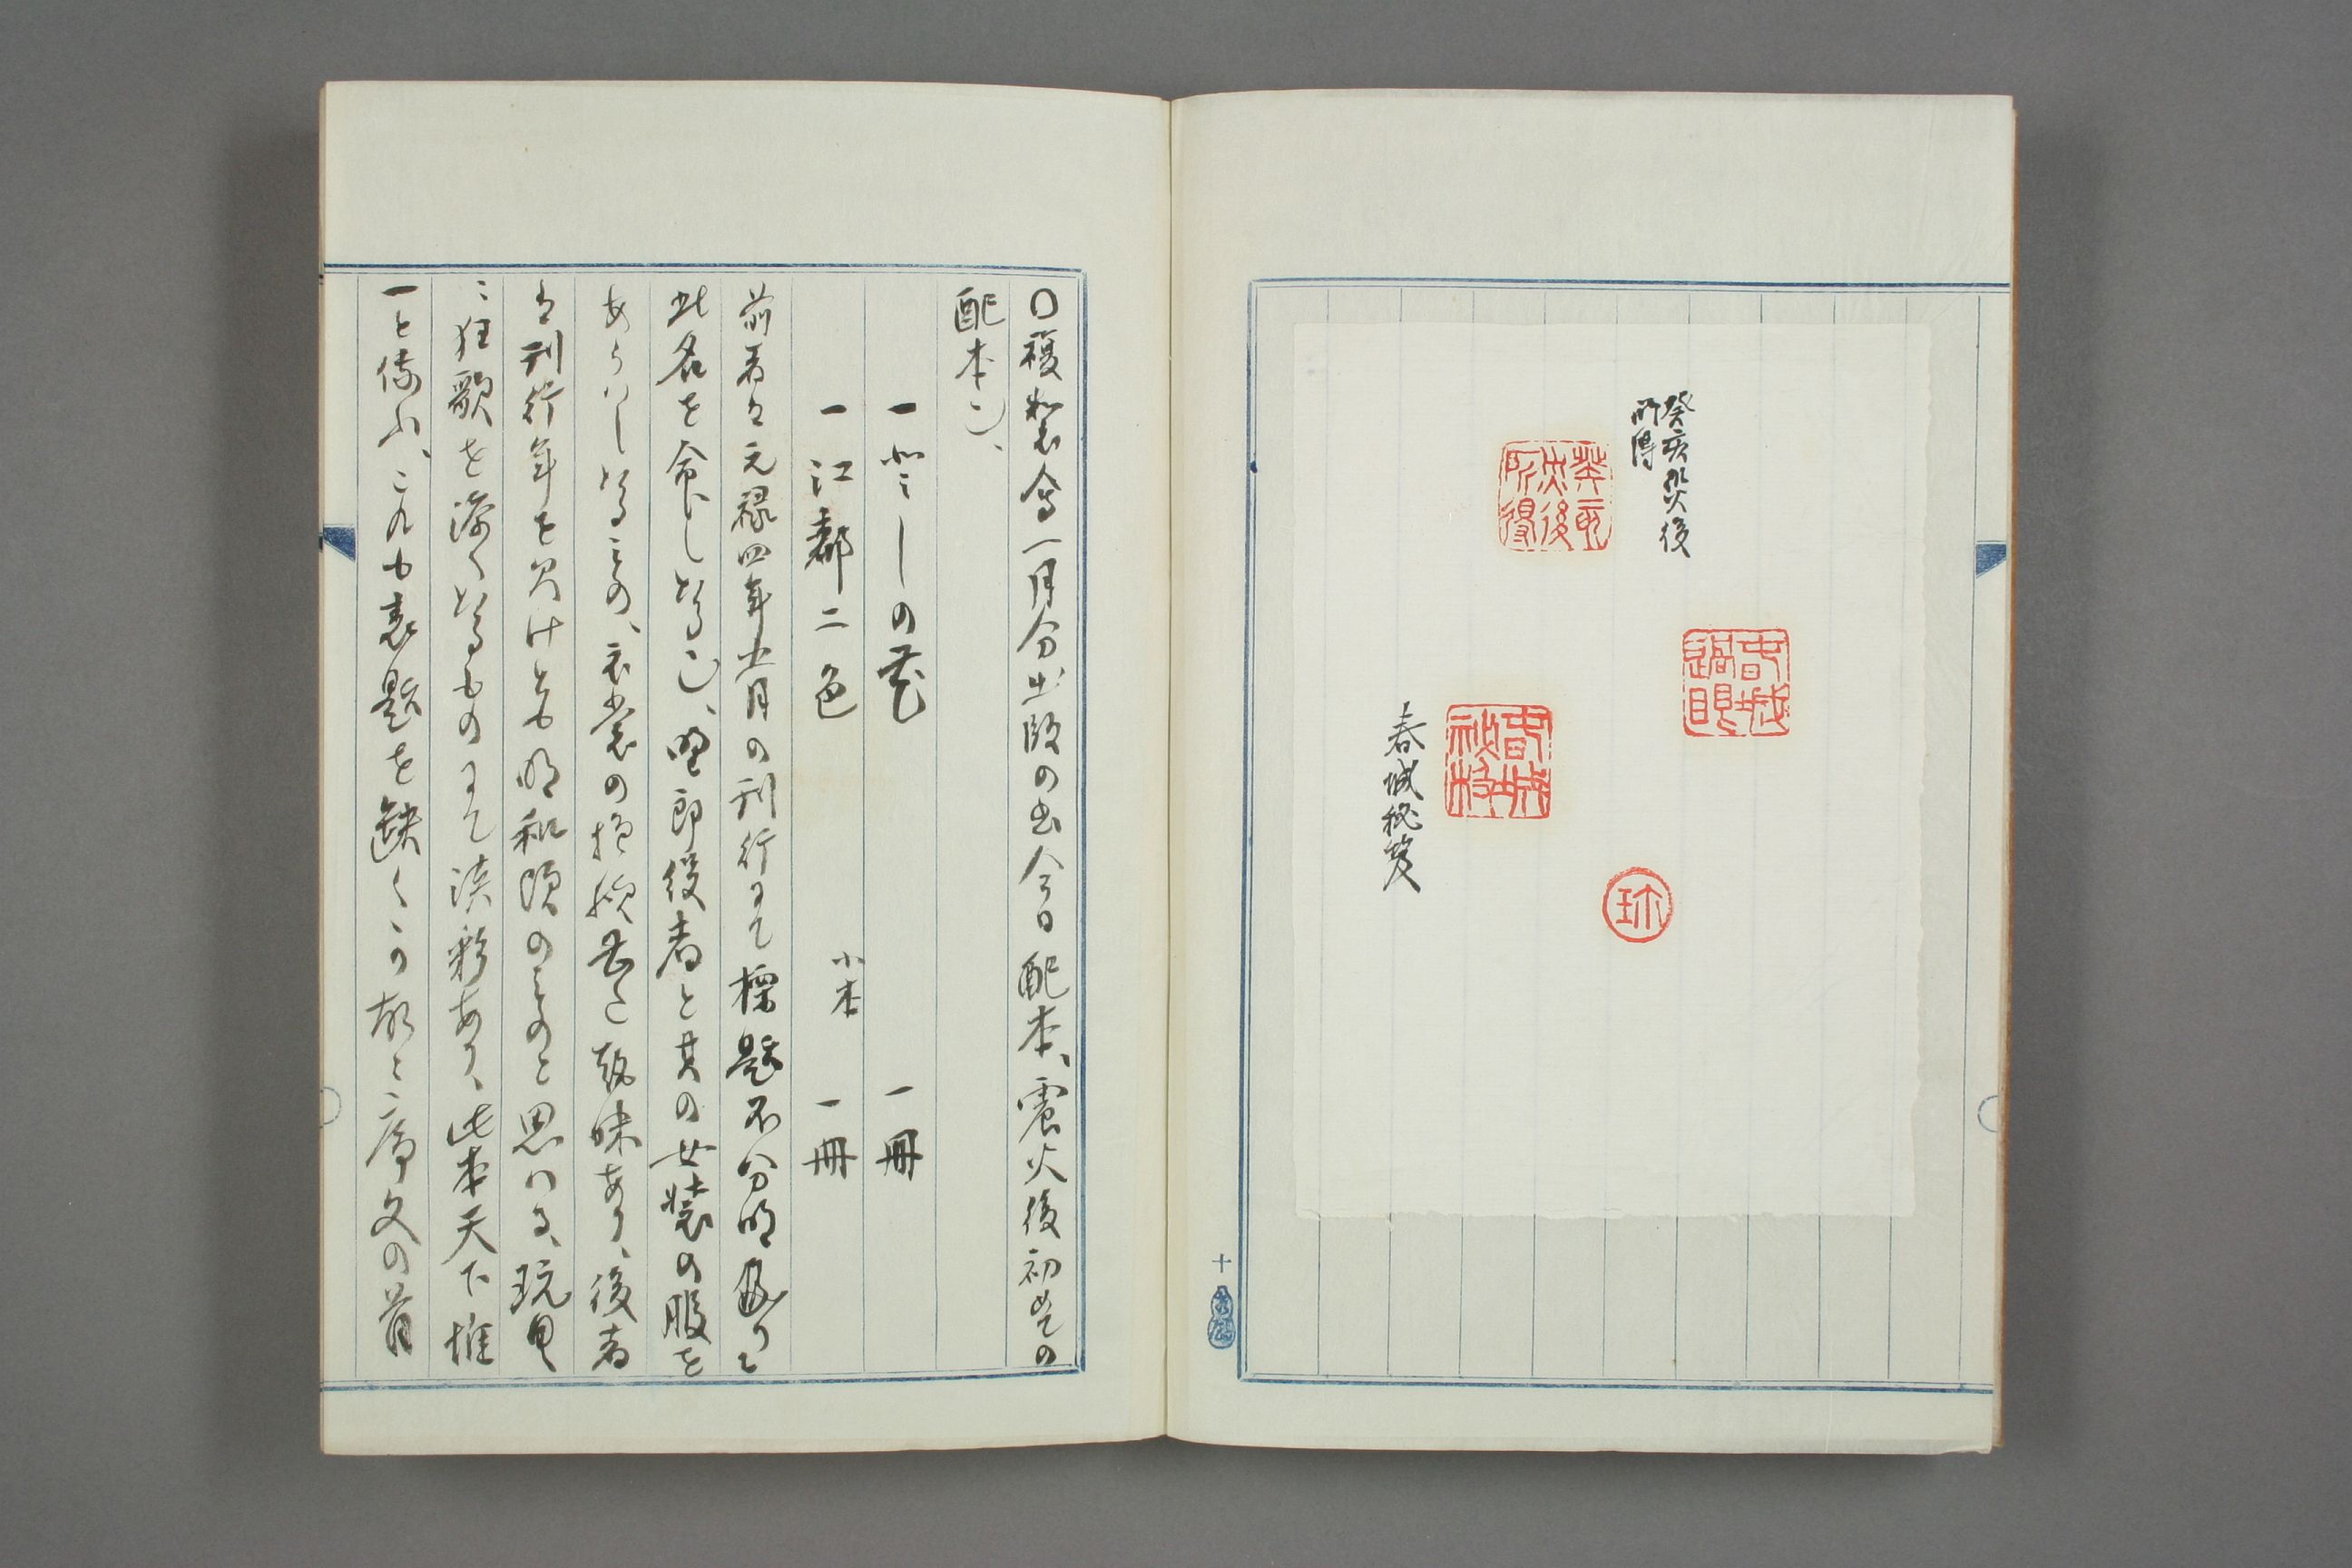 癸亥災後
所得
癸亥
災後
所得
春城
過眼
春城
秘笈
春城秘笈
珎
十
〇複製会一月分出版の書今日配本、震火後初めての
配本也、
一 よしの花 一冊
一 江都二色 小本 一冊
前者は元禄四年五月の刊行にて標題不分明なりと
此名を命じしなる也、野郎役者と其の女装の服を
あらはしなるもの、衣裳の模様甚だ趣味あり、後者
は刊行年を欠けども明和頃のものと思はる、玩具
に狂歌を添へなるものにて淡彩あり、此本天下惟
一と係ふ、これも表題を缺くが故に序文の首